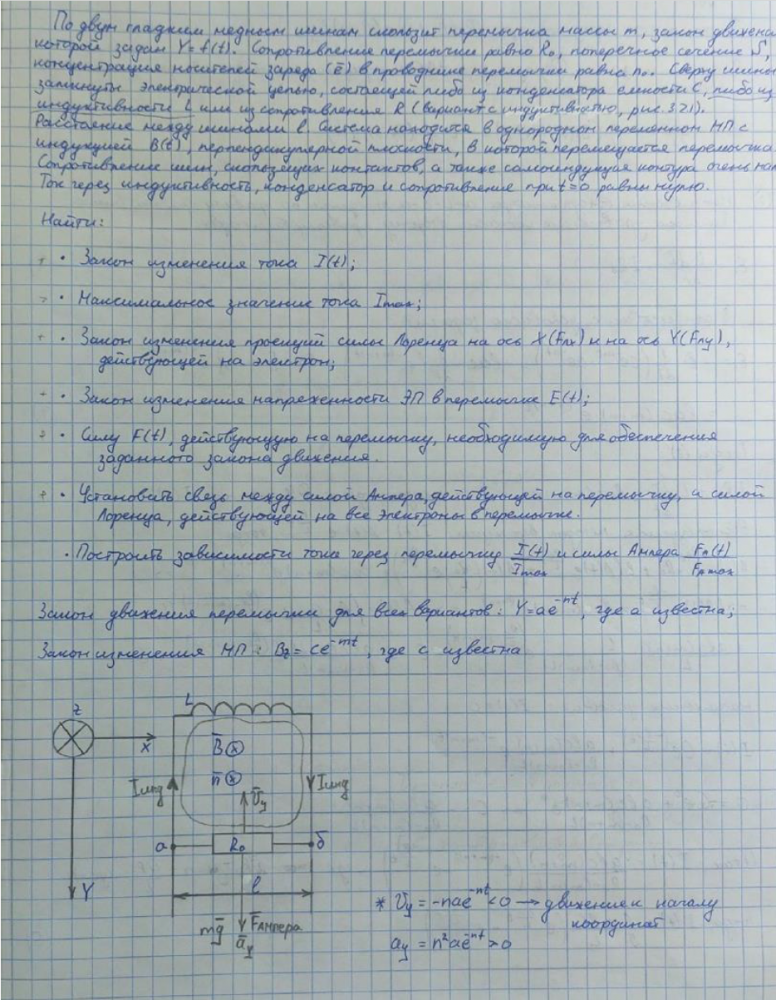 По двум гладким медным шинам скользит перемычка массы m, закон движения
которой задан Y=f(t). Сопротивление перемычки равно R₀, поперечное сечение S,
концентрация носителей заряда (ē) в проводнике перемычки равна n₀. Сверху шины
замкнуты электрической цепью, состоящей либо из конденсатора емкости C, либо из
индуктивности L или из сопротивления R (вариант с индуктивностью, рис. 3.21).
Расстояние между шинами l. Система находится в однородном переменном МП с
индукцией B(t), перпендикулярной плоскости, в которой перемещается перемычка.
Сопротивление шин, скользящих контактов, а также самоиндукция контура очень мал
Ток через индуктивность, конденсатор и сопротивление при t=0 равны нулю.
Найти:
• Закон изменения тока I(t);
• Максимальное значение тока Imax;
• Закон изменения проекций силы Лоренца на ось X(Fлx) и на ось Y(Fлy),
действующей на электрон;
• Закон изменения напряженности ЭП в перемычке E(t);
• Силу F(t), действующую на перемычку, необходимую для обеспечения
заданного закона движения.
• Установить связь между силой Ампера, действующей на перемычку, и силой
Лоренца, действующей на все электроны в перемычке.
• Построить зависимости тока через перемычку I(t)/Imax и силы Ампера FA(t)/FAmax
Закон движения перемычки для всех вариантов: Y=ae^-nt, где a известна;
Закон изменения МП: Bz=ce^-mt, где c известна
z
L
x
B̄
n̄
Iинд
ῡy
Iинд
а
R₀
б
Y
l
mḡ
F̄Ампера
āy
* υy = -nae^-nt <0 → движение к началу
координат
ay = n²ae^-nt >0